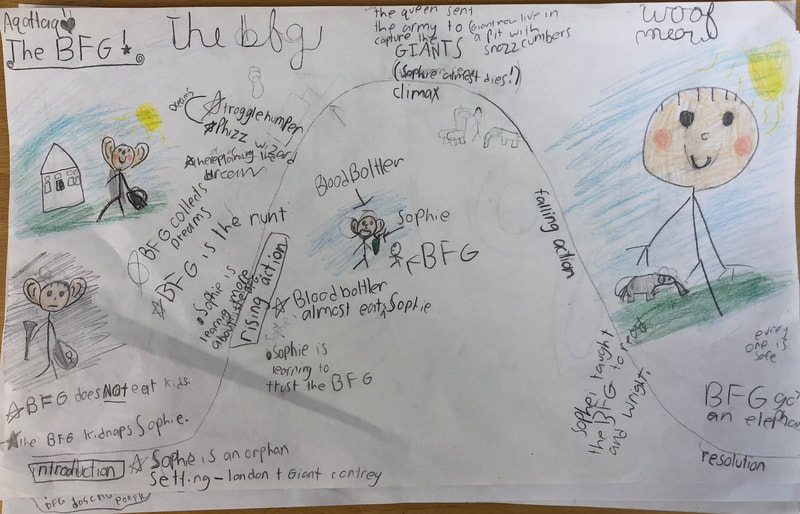 The BFG!
The bfg
the queen sent
the army to
capture the
GIANTS
(Giant now live in
a pit with
snozzcumbers
(Sophie almost dies!)
climax
woof
meow
Dreams
trogglehumper
Phizz
wizard
dream
BFG collects
Dreams
BFG is the runt
Sophie is
learning more
about
rising action
BloodBottler
Sophie
BFG
Bloodbottler
almost eats Sophie
Sophie is
learning to
trust the BFG
falling action
Sophie taught
the BFG to read
and wright.
every
one is
safe
BFG got
an elephan
resolution
BFG does NOT eat kids.
the BFG kidnaps Sophie.
introduction
Sophie is an orphan
Setting - london + Giant contrey